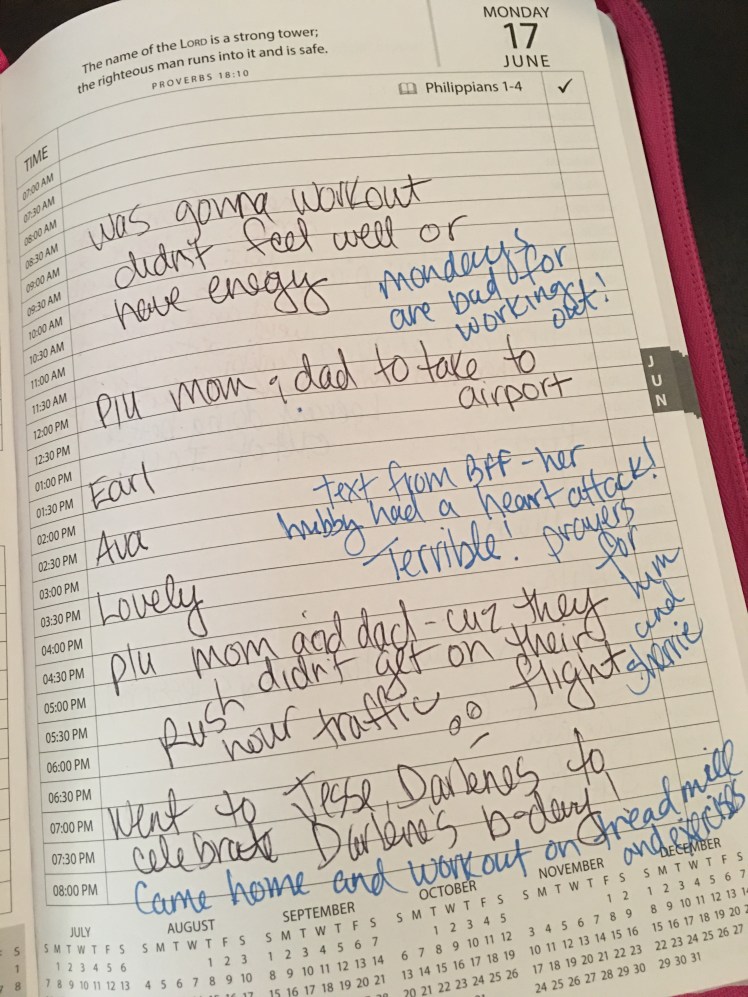 The name of the LORD is a strong tower;
the righteous man runs into it and is safe.
PROVERBS 18:10
MONDAY
17
JUNE
Philippians 1-4 ✓
TIME
07:00 AM
07:30 AM
08:00 AM
08:30 AM
09:00 AM
09:30 AM
10:00 AM
10:30 AM
11:00 AM
11:30 AM
12:00 PM
12:30 PM
01:00 PM
01:30 PM
02:00 PM
02:30 PM
03:00 PM
03:30 PM
04:00 PM
04:30 PM
05:00 PM
05:30 PM
06:00 PM
06:30 PM
07:00 PM
07:30 PM
08:00 PM
was gonna workout
didn't feel well or
have enegy
mondays
are bad for
working
out!
P/U mom & dad to take to
airport
Earl
text from BFF - her
hubby had a heart attack!
Terrible! prayers
for
him
and
Sherrie
Ava
Lovely
P/U mom and dad - cuz they
didn't get on their
flight
Rush
hour traffic
Went to Jesse, Darlenes to
celebrate Darlene's b-day!
Came home and workout on treadmill
and exercises
JUN
JULY
S M T W T F S
1 2 3 4 5 6
7 8 9 10 11 12 13
AUGUST
S M T W T F S
1 2 3
4 5 6 7 8 9 10
SEPTEMBER
S M T W T F S
1 2 3 4 5 6 7
8 9 10 11 12 13 14
15 16 17 18 19 20 21
OCTOBER
S M T W T F S
1 2 3 4 5
6 7 8 9 10 11 12
13 14 15 16 17 18 19
20 21 22 23 24 25 26
NOVEMBER
S M T W T F S
1 2
3 4 5 6 7 8 9
10 11 12 13 14 15 16
17 18 19 20 21 22 23
24 25 26 27 28 29 30
DECEMBER
S M T W T F S
1 2 3 4 5 6 7
8 9 10 11 12 13 14
15 16 17 18 19 20
22 23 24 25 26 27
29 30 31